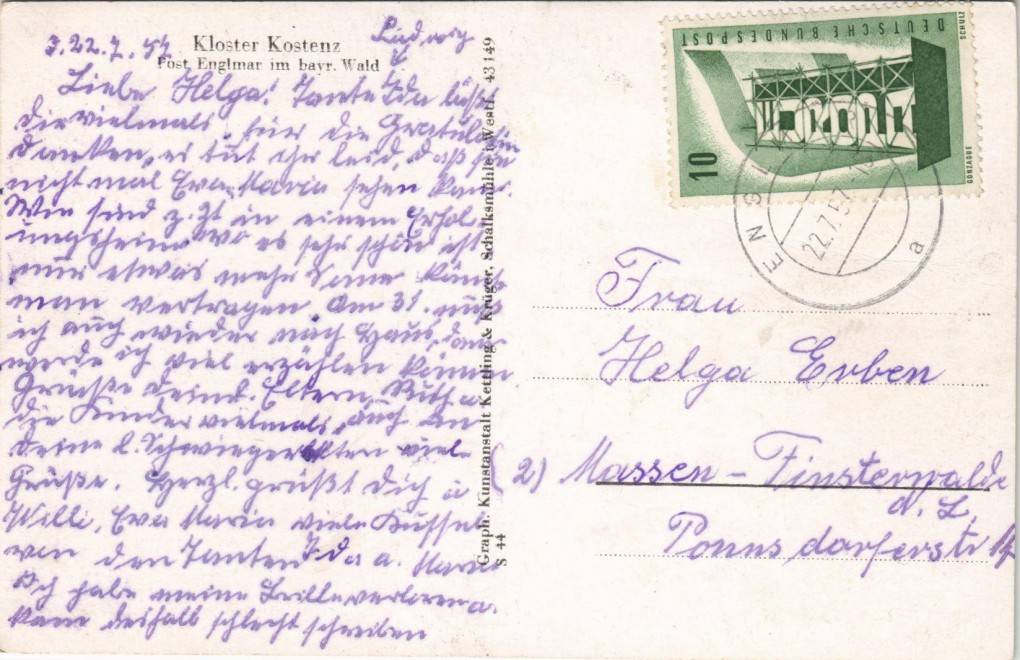 z. 22.7.57
Kloster Kostenz
Post Englmar im bayr. Wald
Ludwig
Liebe Helga! Tante Ida läßt
Dir vielmals für die Gratulation
danken, es tut ihr leid, daß sie
nicht mal Eva Maria sehen kann.
Wir sind z. Zt in einem Erhol-
ungsheim wo es sehr schön ist
nur etwas mehr Sonne könnt
man vertragen Am 31. muß
ich auch wieder nach Haus, dann
werde ich viel erzählen können.
Grüße Deine Eltern, Ruth u
die Kinder vielmals, auch an
Deine l. Schwiegereltern viele
Grüße. Herzl. grüßt Dich u
Willi, Eva Maria viele Bussel
von den Tanten Ida u. Maria
Ich habe meine Brille verloren u.
kann deshalb schlecht schreiben
Graph. Kunstanstalt Kettling & Krüger, Schalksmühle i. Westf. 43149
S 44
DEUTSCHE BUNDESPOST
10
SCHULZ
GONZAGUE
ENGL
22.7.57
a
Frau
Helga Erben
(2) Massen - Finsterwalde
d. L.
Ponnsdorferstr